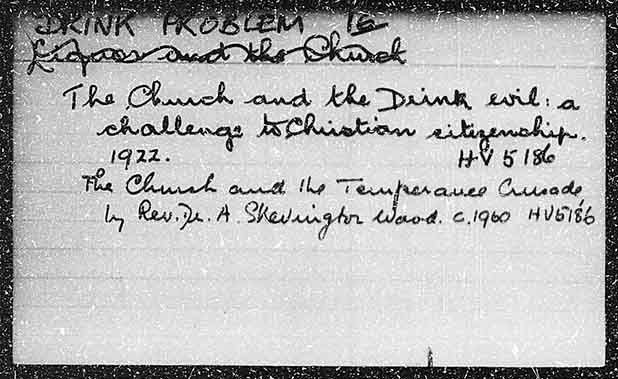 DRINK PROBLEM 16
Liquor and the Church
The Church and the Drink evil: a
challenge to Christian citizenship.
1922. HV 5186
The Church and the Temperance Crusade
by Rev. Dr. A. Skevington Wood. c.1960 HV5186